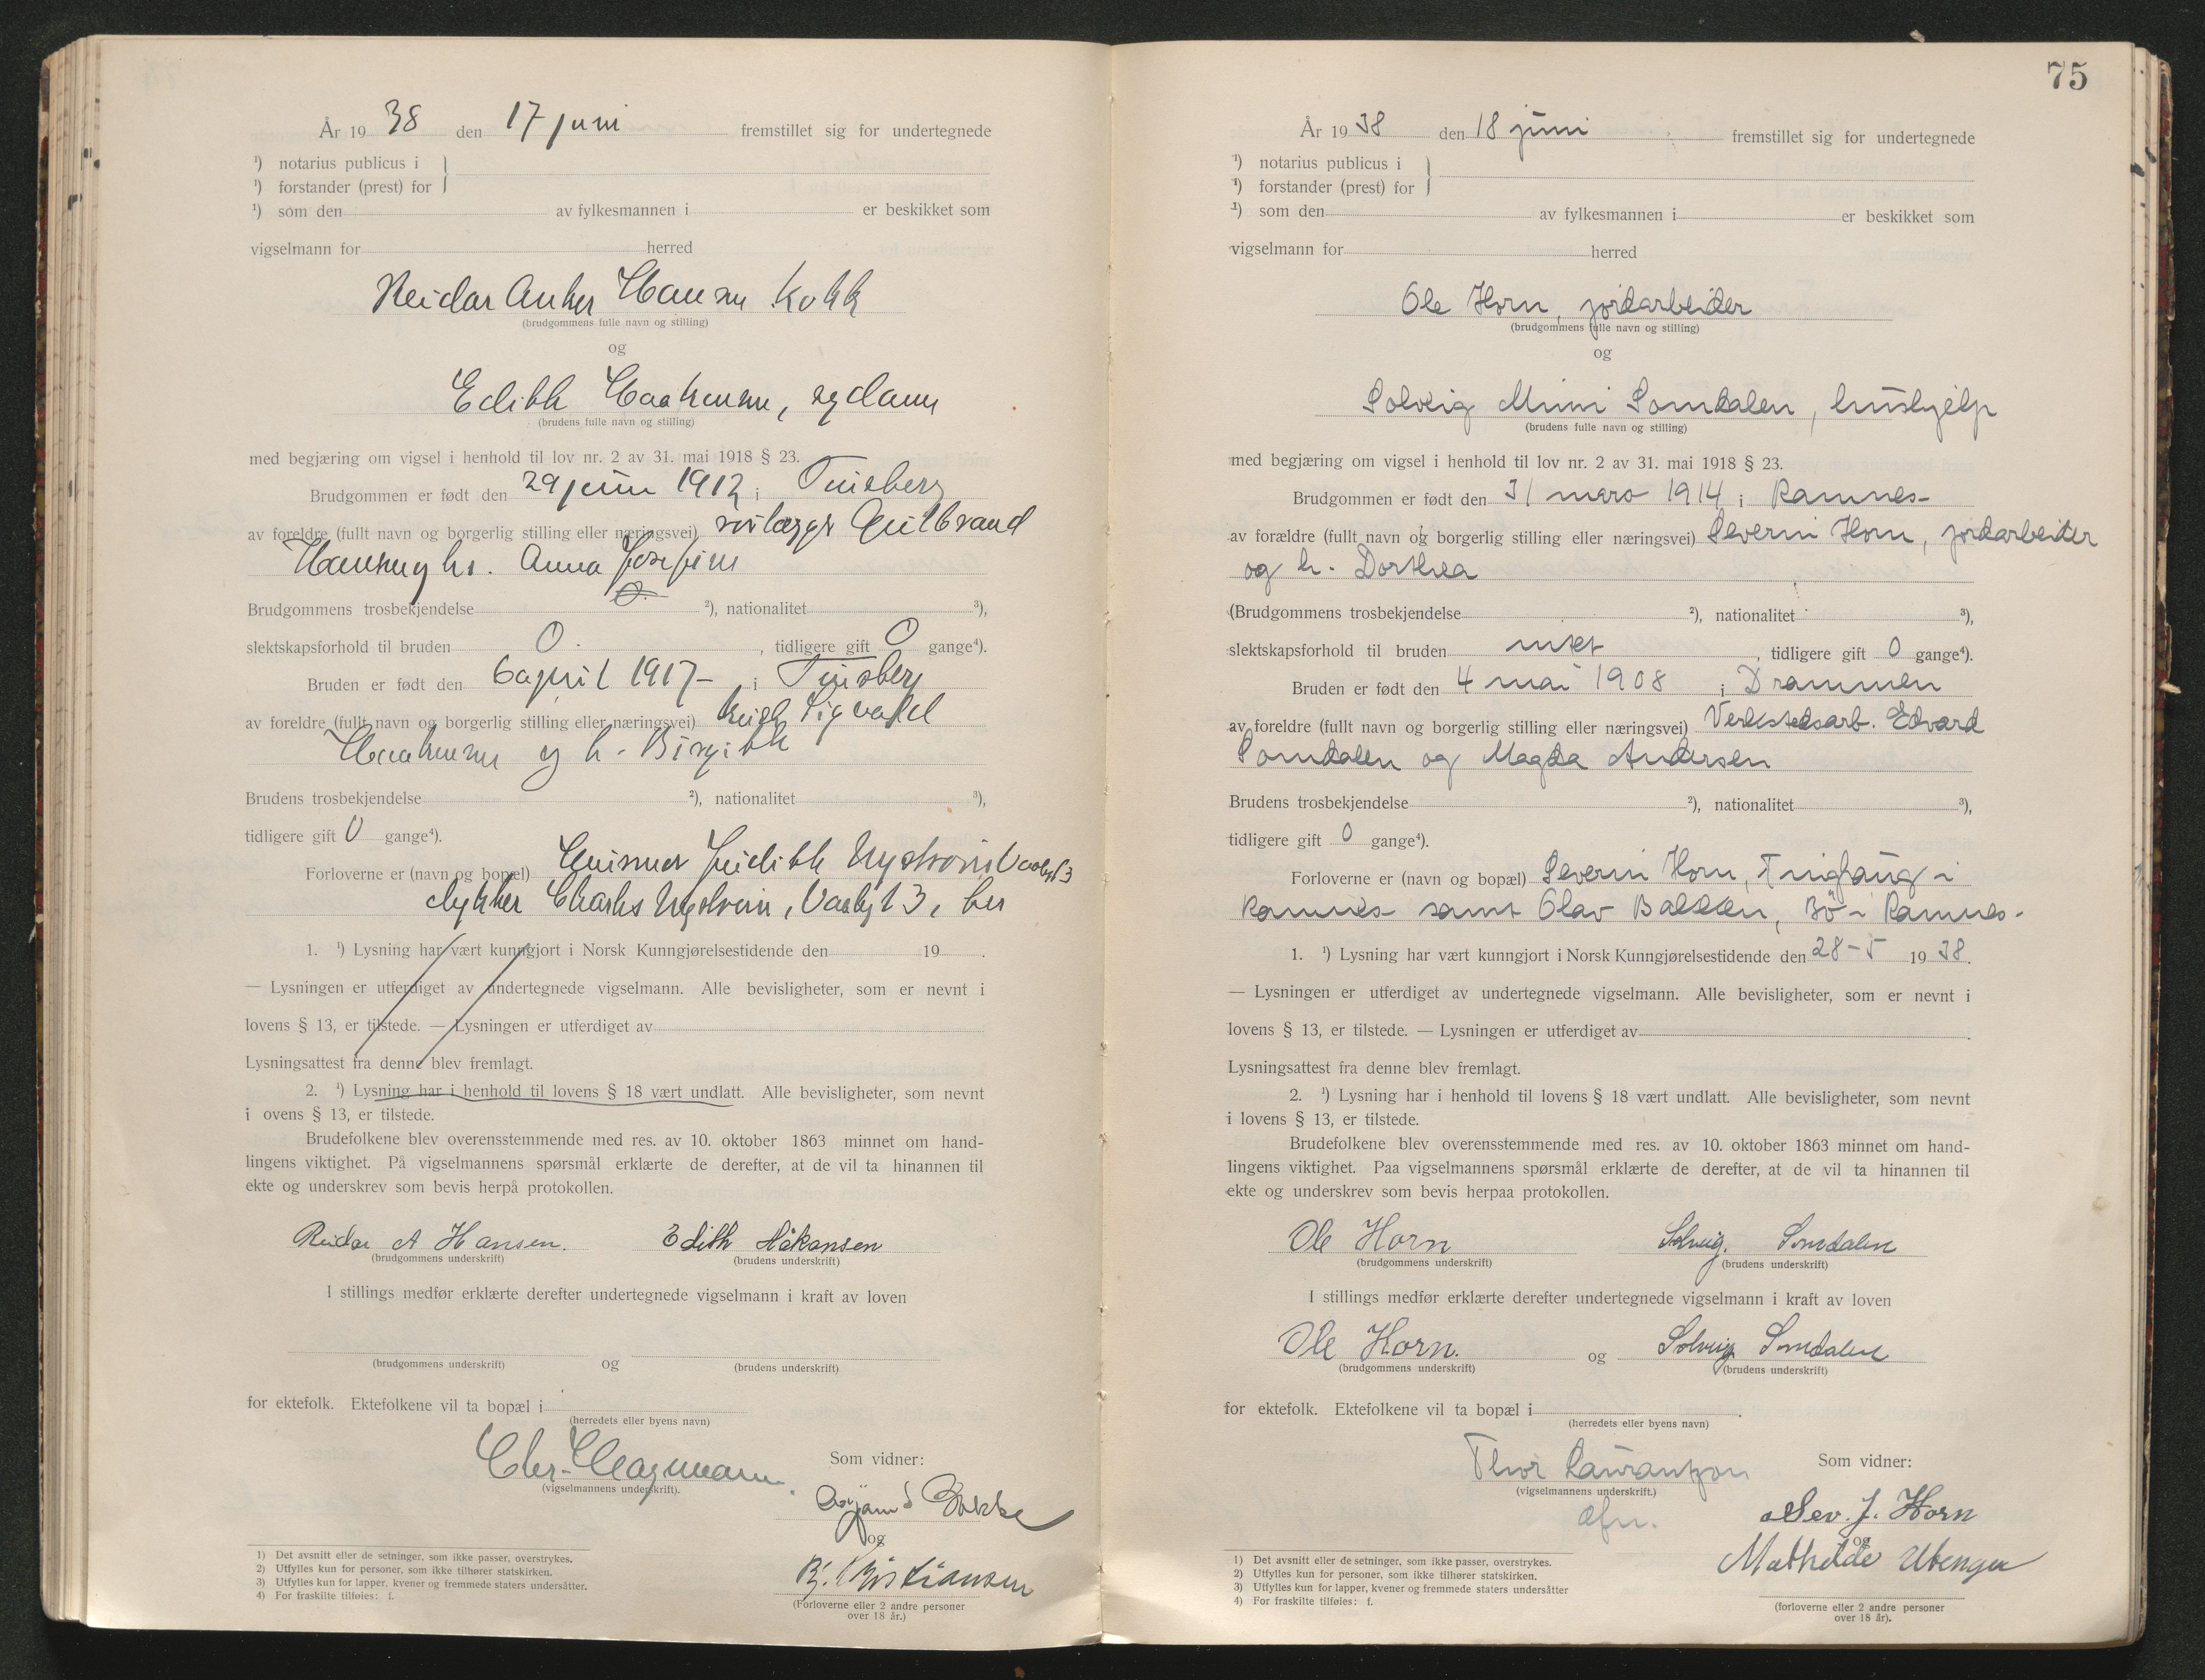 År 19 38 den 17 juni fremstillet sig for undertegnede
¹) notarius publicus i
¹) forstander (prest) for
¹) som den av fylkesmannen i er beskikket som
vigselmann for herred
Reidar Anker Hansen kokk
(brudgommens fulle navn og stilling)
og
Edith Haakensen, sydame
(brudens fulle navn og stilling)
med begjæring om vigsel i henhold til lov nr. 2 av 31. mai 1918 § 23.
Brudgommen er født den 29 juni 1912 i Tønsberg
av foreldre (fullt navn og borgerlig stilling eller næringsvei) rørlegger Gulbrand
Hansen og h. Anna Josefine
Brudgommens trosbekjendelse ²), nationalitet ³),
slektskapsforhold til bruden 0. , tidligere gift 0 gange⁴).
Bruden er født den 6 april 1917 - i Tønsberg
av foreldre (fullt navn og borgerlig stilling eller næringsvei) Sigvald
Haakensen og h. Birgith
Brudens trosbekjendelse ²), nationalitet ³),
tidligere gift 0 gange⁴).
Forloverne er (navn og bopæl) Judith Nystrøm
dykker Charles Nystrøm, 3, her
1. ¹) Lysning har vært kunngjort i Norsk Kunngjørelsestidende den 19 .
— Lysningen er utferdiget av undertegnede vigselmann. Alle bevisligheter, som er nevnt i
lovens § 13, er tilstede. — Lysningen er utferdiget av
Lysningsattest fra denne blev fremlagt.
2. ¹) Lysning har i henhold til lovens § 18 vært undlatt. Alle bevisligheter, som nevnt
i ovens § 13, er tilstede.
Brudefolkene blev overensstemmende med res. av 10. oktober 1863 minnet om hand-
lingens viktighet. På vigselmannens spørsmål erklærte de derefter, at de vil ta hinannen til
ekte og underskrev som bevis herpå protokollen.
Reidar A Hansen. Edith Håkansen
(brudgommens underskrift) (brudens underskrift)
I stillings medfør erklærte derefter undertegnede vigselmann i kraft av loven
(brudgommens underskrift) og (brudens underskrift)
for ektefolk. Ektefolkene vil ta bopæl i
(herredets eller byens navn)
Chr. Hagemann.
(vigselmannens underskrift).
Som vidner:
Bakke
og
Kristiansen
(Forloverne eller 2 andre personer
over 18 år.)
1) Det avsnitt eller de setninger, som ikke passer, overstrykes.
2) Utfylles kun for personer, som ikke tilhører statskirken.
3) Utfylles kun for lapper, kvener og fremmede staters undersåtter.
4) For fraskilte tilføies: f.
75
År 19 38 den 18 juni fremstillet sig for undertegnede
¹) notarius publicus i
¹) forstander (prest) for
¹) som den av fylkesmannen i er beskikket som
vigselmann for herred
Ole Horn, jordarbeider
(brudgommens fulle navn og stilling)
og
Solveig Mimi Somdalen, hushjelp
(brudens fulle navn og stilling)
med begjæring om vigsel i henhold til lov nr. 2 av 31. mai 1918 § 23.
Brudgommen er født den 31 mars 1914 i Ramnes-
av forældre (fullt navn og borgerlig stilling eller næringsvei) Severin Horn, jordarbeider
og h. Dorthea
(Brudgommens trosbekjendelse ²), nationalitet ³),
slektskapsforhold til bruden intet , tidligere gift 0 gange⁴).
Bruden er født den 4 mai 1908 i Drammen
av foreldre (fullt navn og borgerlig stilling eller næringsvei) Verkstedsarb. Edvard
Somdalen og Magda Andersen
Brudens trosbekjendelse ²), nationalitet ³),
tidligere gift 0 gange⁴).
Forloverne er (navn og bopæl) Severin Horn, i
Ramnes samt Olav Bakken, Bö i Ramnes.
1. ¹) Lysning har vært kunngjort i Norsk Kunngjørelsestidende den 28-5 19 38.
— Lysningen er utferdiget av undertegnede vigselmann. Alle bevisligheter, som er nevnt i
lovens § 13, er tilstede. — Lysningen er utferdiget av .
Lysningsattest fra denne blev fremlagt.
2. ¹) Lysning har i henhold til lovens § 18 vært undlatt. Alle bevisligheter, som nevnt
i lovens § 13, er tilstede.
Brudefolkene blev overensstemmende med res. av 10. oktober 1863 minnet om hand-
lingens viktighet. Paa vigselmannens spørsmål erklærte de derefter, at de vil ta hinannen til
ekte og underskrev som bevis herpaa protokollen.
Ole Horn Solveig. Somdalen
(brudgommens underskrift) (brudens underskrift)
I stillings medfør erklærte derefter undertegnede vigselmann i kraft av loven
Ole Horn. og Solveig Somdalen
(brudgommens underskrift) (brudens underskrift)
for ektefolk. Ektefolkene vil ta bopæl i .
(herredets eller byens navn)
Thor Laurantzon
(vigselmannens underskrift.)
Som vidner:
Sev. J. Horn
og
Mathilde
(forloverne eller 2 andre personer
over 18 år).
1) Det avsnitt eller de setninger, som ikke passer, overstrykes.
2) Utfylles kun for personer, som ikke tilhører statskirken.
3) Utfylles kun for lapper, kvener og fremmede staters undersåtter
4) For fraskilte tilføies: f.